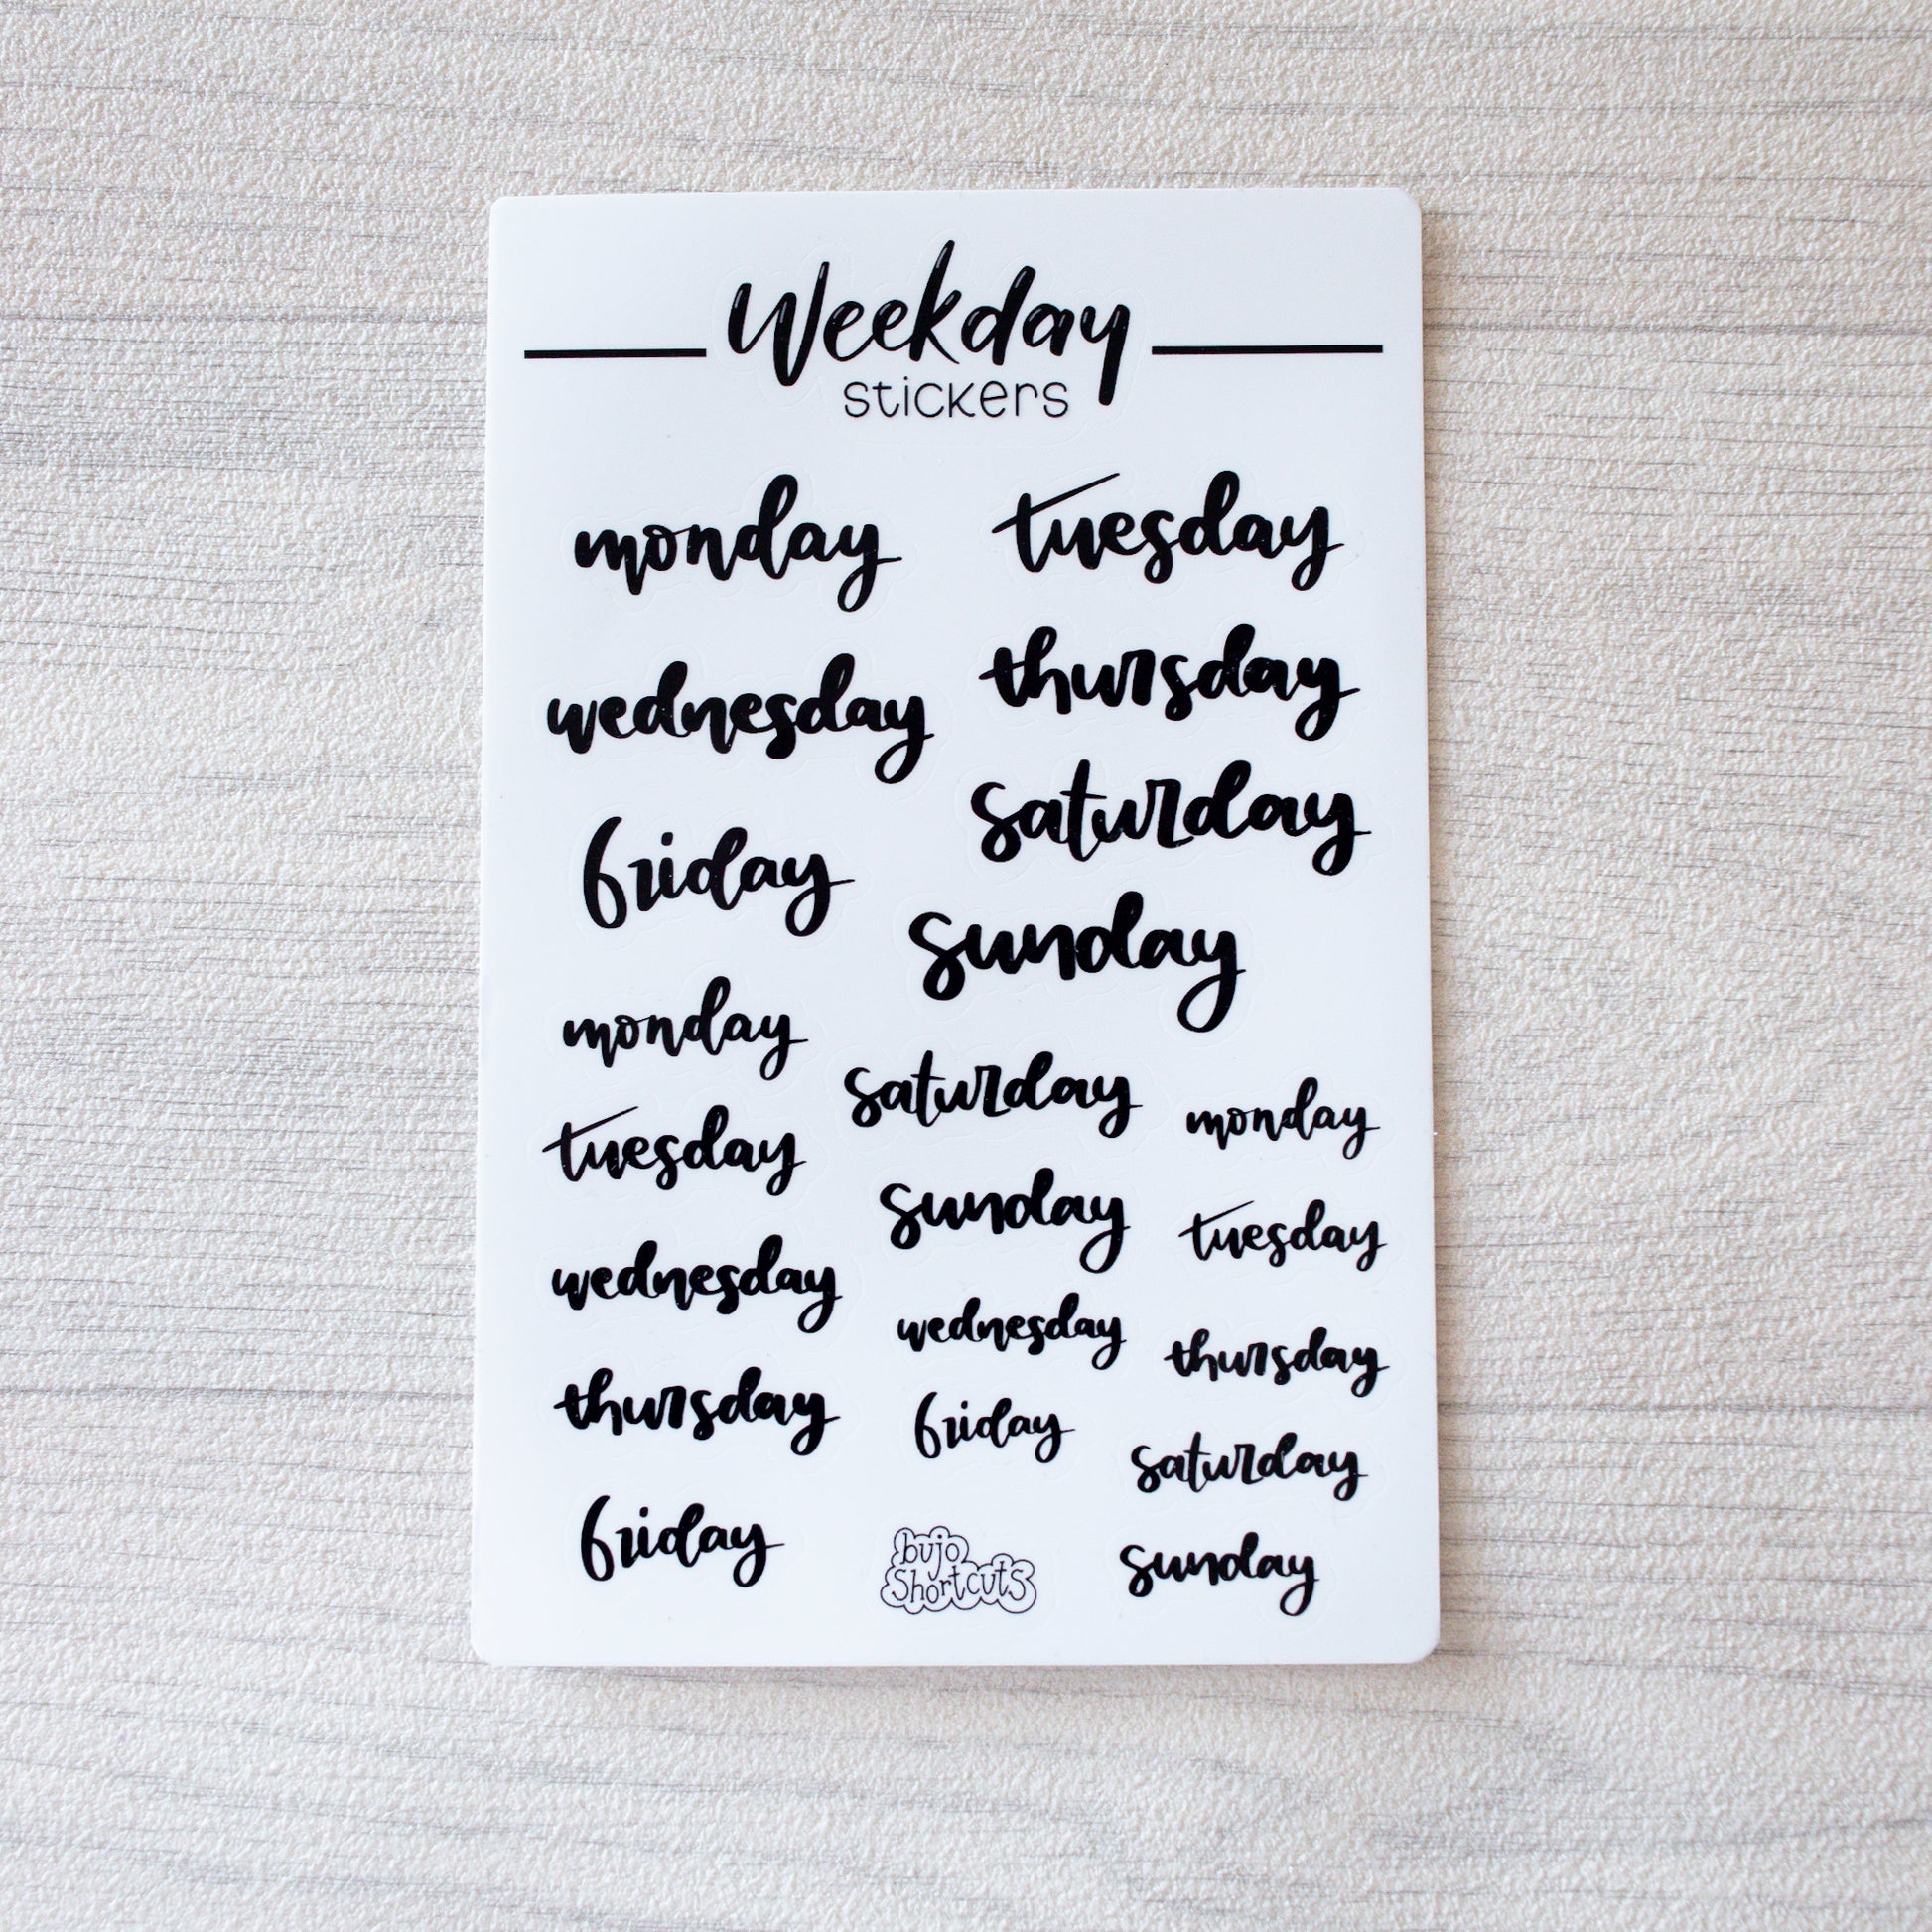 Weekday
stickers
monday
tuesday
wednesday
thursday
friday
saturday
sunday
monday
tuesday
wednesday
thursday
friday
saturday
sunday
monday
tuesday
wednesday
thursday
friday
saturday
sunday
bujo
Shortcuts